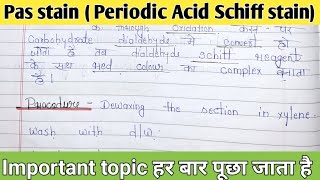 Pas stain ( Periodic Acid Schiff stain)
Oxidation पर
Carbohydrate dialdehyde में convert हो
जाता है तब dialdehyde schiff reagent
के साथ red colour का complex बनाता
है।
Procedure - Dewaxing the section in xylene
wash with d/w.
Important topic हर बार पूछा जाता है